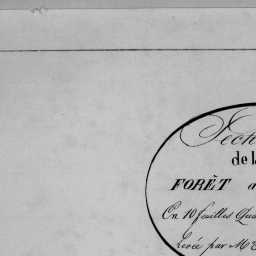 Secti
de la
FORÊT d
En 10 feuilles Qua
Levée par M